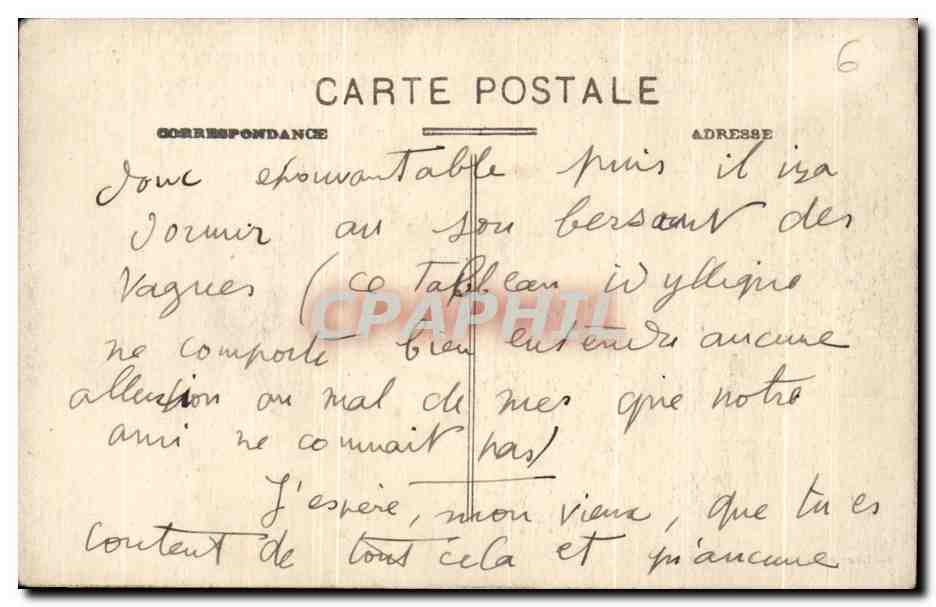 6
CARTE POSTALE
CORRESPONDANCE
ADRESSE
donc épouvantable puis il ira
dormir au son bersant des
vagues (ce tableau idyllique
CPAPHIL
ne comporte bien entendu aucune
allusion au mal de mer que notre
ami ne connait pas)
J'espère, mon vieux, que tu es
content de tous cela et qu'aucune